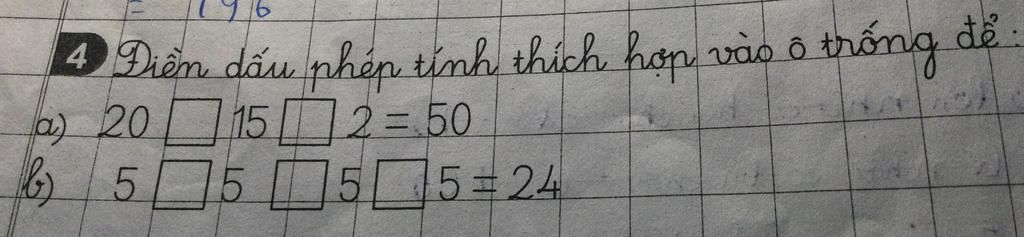 = 196
4 Điền dấu phép tính thích hợp vào ô trống để:
a) 20 □ 15 □ 2 = 50
b) 5 □ 5 □ 5 □ 5 = 24